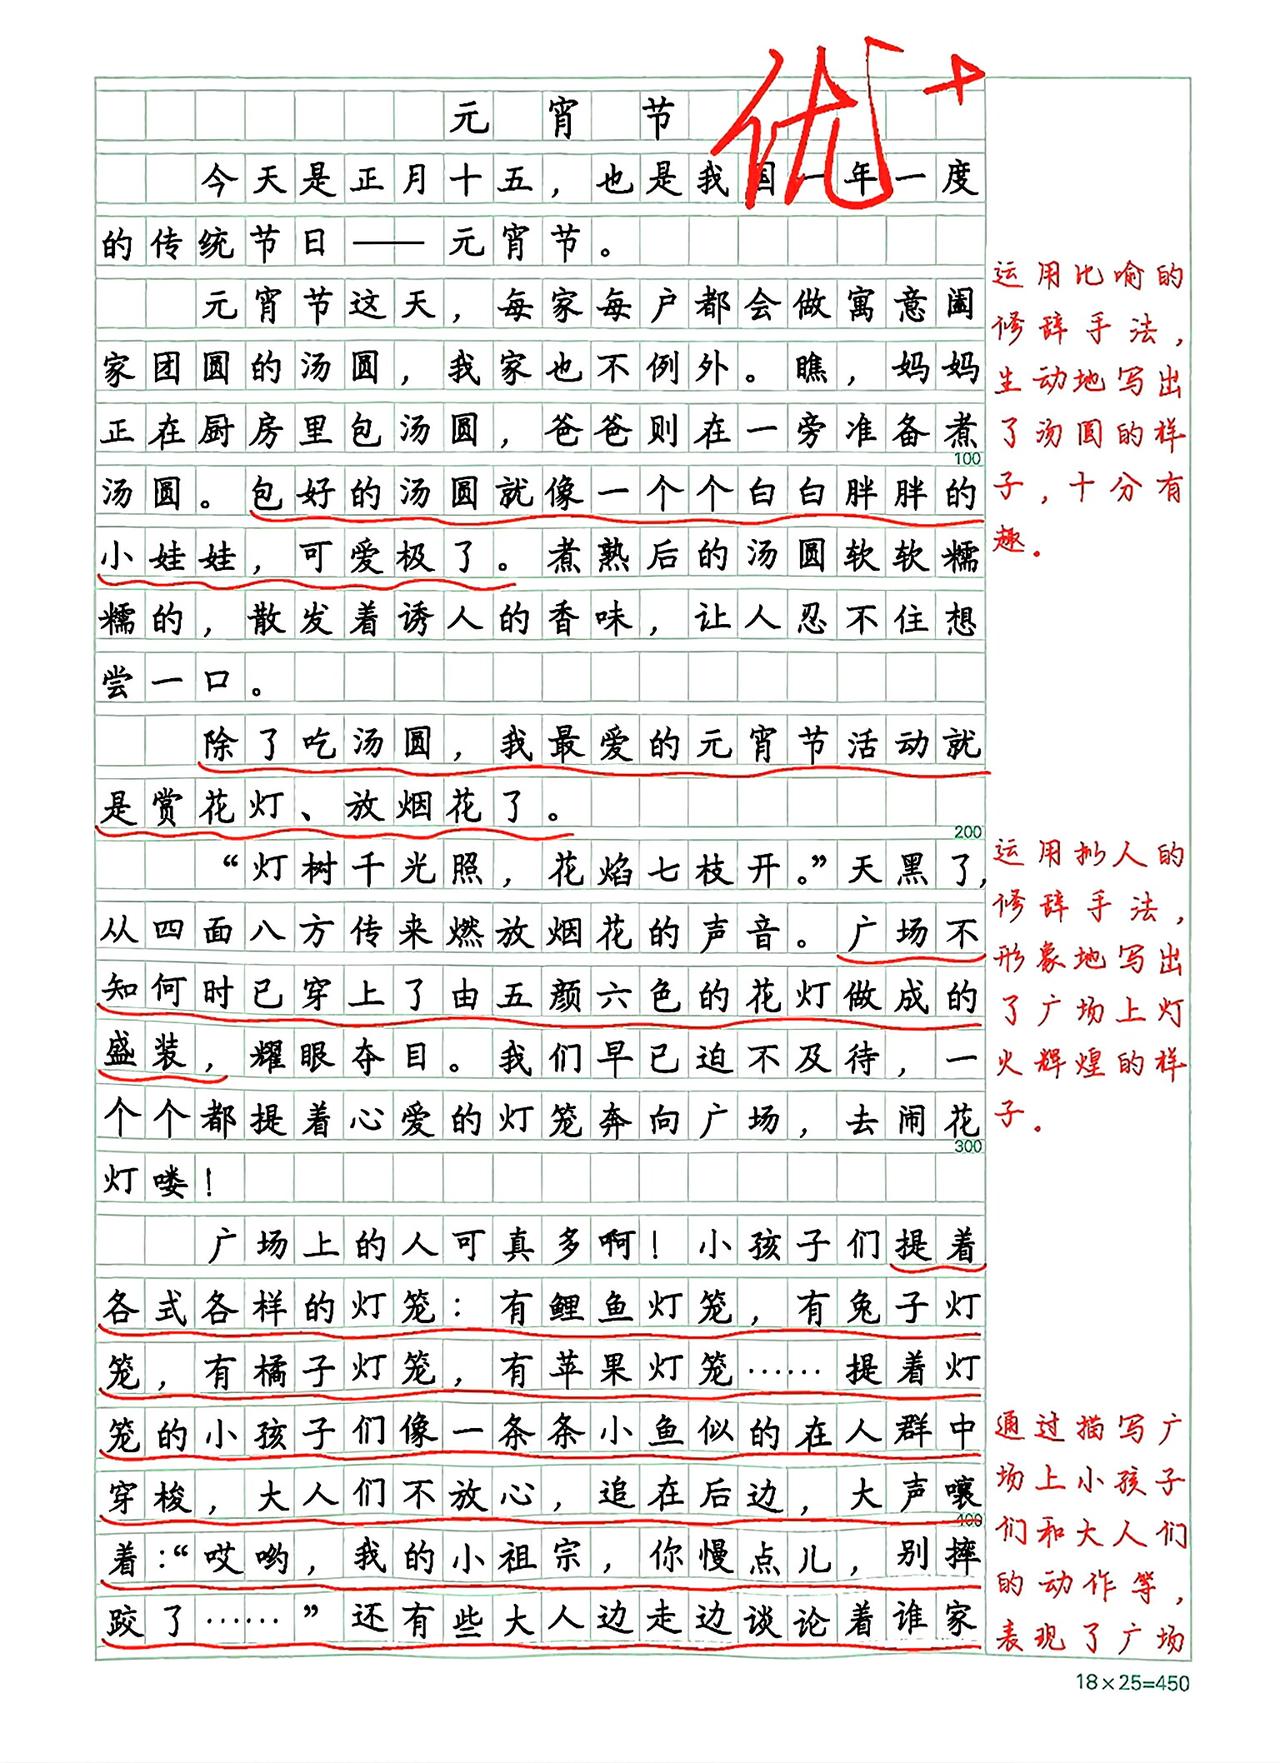 元宵节
优+
今天是正月十五，也是我国一年一度
的传统节日——元宵节。
元宵节这天，每家每户都会做寓意阖
家团圆的汤圆，我家也不例外。瞧，妈妈
正在厨房里包汤圆，爸爸则在一旁准备煮
100
汤圆。包好的汤圆就像一个个白白胖胖的
小娃娃，可爱极了。煮熟后的汤圆软软糯
糯的，散发着诱人的香味，让人忍不住想
尝一口。
除了吃汤圆，我最爱的元宵节活动就
是赏花灯、放烟花了。
200
“灯树千光照，花焰七枝开。”天黑了，
从四面八方传来燃放烟花的声音。广场不
知何时已穿上了由五颜六色的花灯做成的
盛装，耀眼夺目。我们早已迫不及待，一
个个都提着心爱的灯笼奔向广场，去闹花
300
灯喽！
广场上的人可真多啊！小孩子们提着
各式各样的灯笼：有鲤鱼灯笼，有兔子灯
笼，有橘子灯笼，有苹果灯笼……提着灯
笼的小孩子们像一条条小鱼似的在人群中
穿梭，大人们不放心，追在后边，大声嚷
400
着：“哎哟，我的小祖宗，你慢点儿，别摔
跤了……”还有些大人边走边谈论着谁家
运用比喻的
修辞手法，
生动地写出
了汤圆的样
子，十分有
趣。
运用拟人的
修辞手法，
形象地写出
了广场上灯
火辉煌的样
子。
通过描写广
场上小孩子
们和大人们
的动作等，
表现了广场
18×25=450